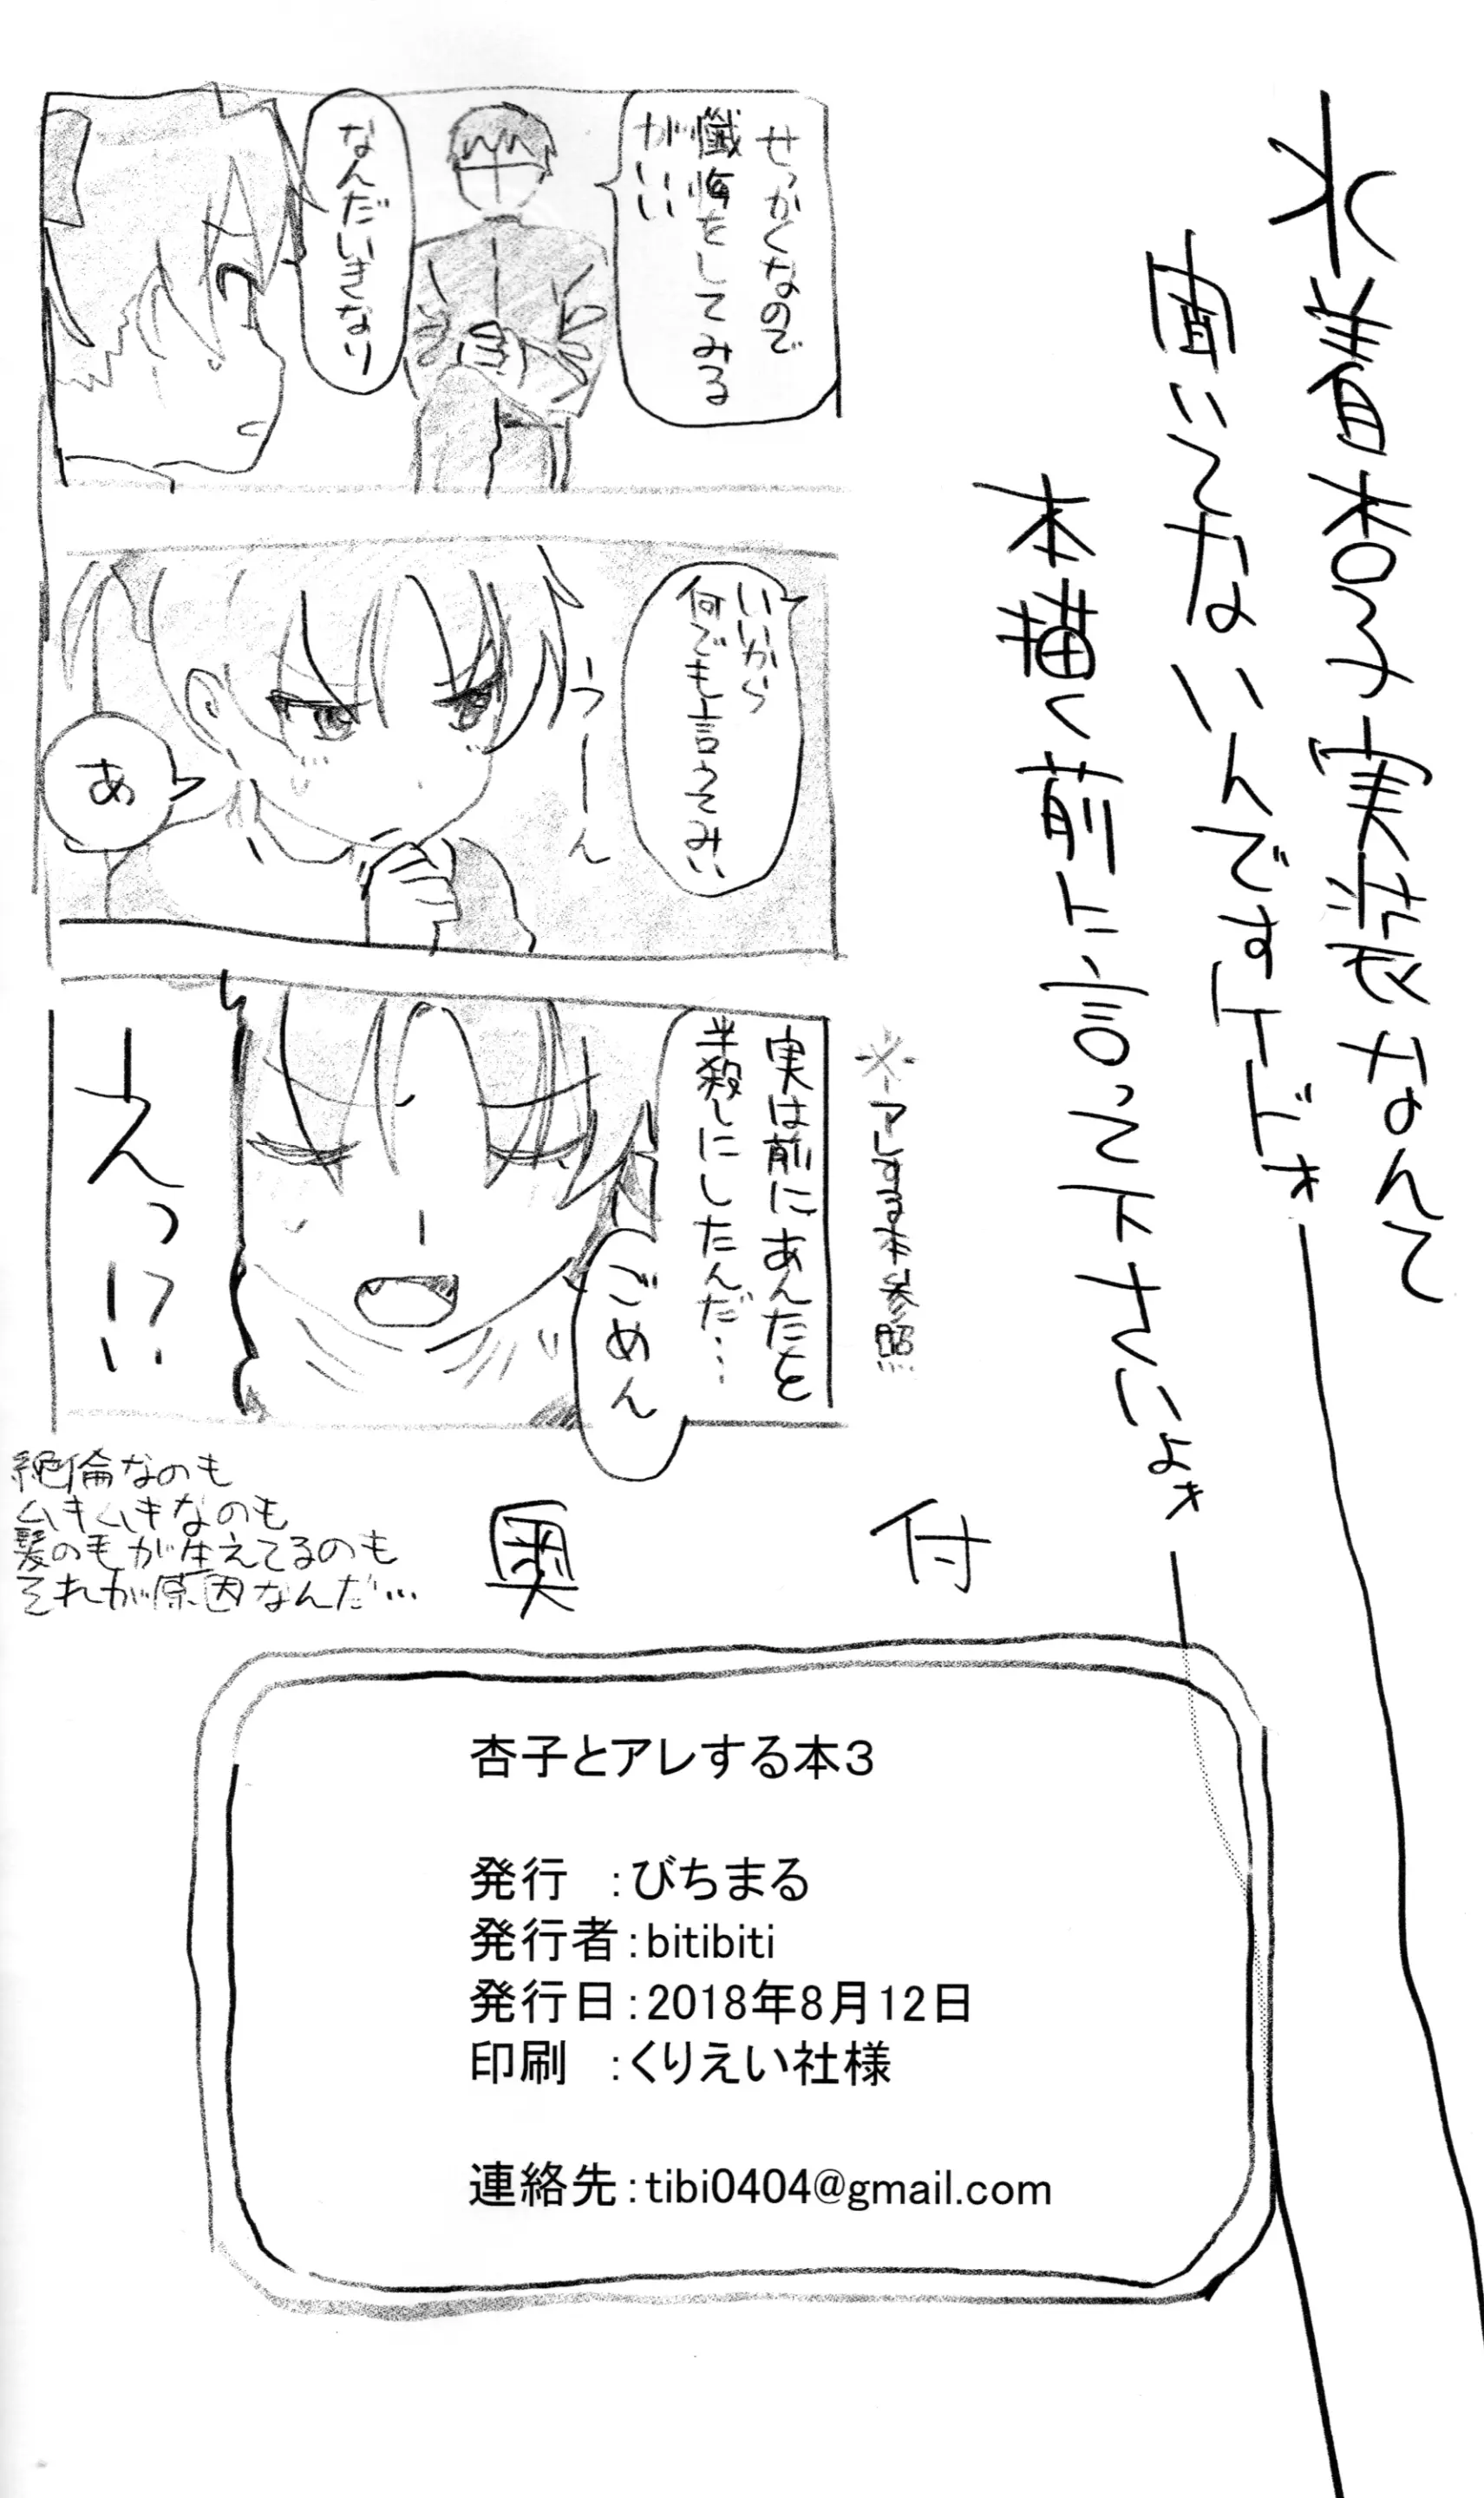 水着杏子実装なんて
聞いてないんですケドォ
本描く前に言って下さいよォ
せっかくなので
懺悔をしてみる
がいい
なんだいきなり
いいから
何でも言ってみい
うーん
あ
※アレする本参照
実は前にあんたを
半殺しにしたんだ…
ごめん
えっ!?
絶倫なのも
ムキムキなのも
髪の毛が生えてるのも
それが原因なんだ…
奥 付
杏子とアレする本3
発行 :びちまる
発行者:bitibiti
発行日:2018年8月12日
印刷 :くりえい社様
連絡先:tibi0404@gmail.com